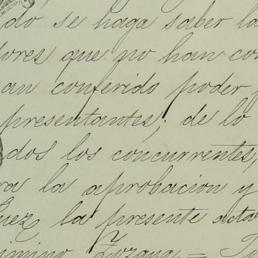 do se haga saber la
ores que no han con
an conferido poder
presentantes; de lo
dos los concurrentes,
ra la aprobacion y
uez la presente acta